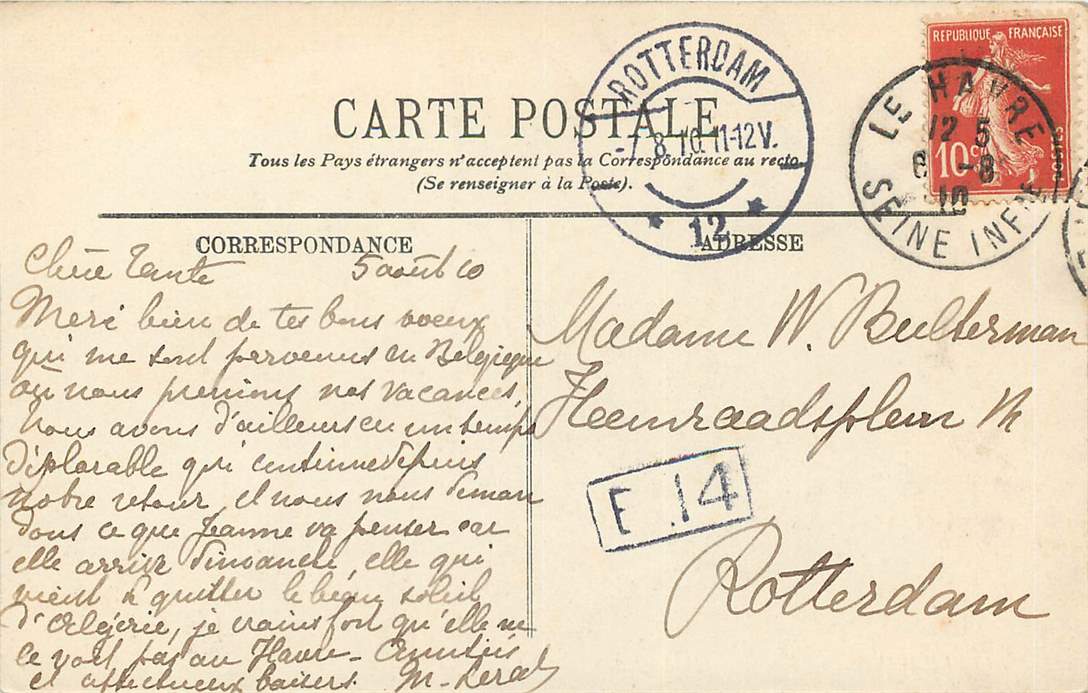 CARTE POSTALE
Tous les Pays étrangers n'acceptent pas la Correspondance au recto
(Se renseigner à la Poste).
ROTTERDAM
-7.8.10.11-12V.
12
REPUBLIQUE FRANÇAISE
10c
POSTES
LE HAVRE
12 5
6 -8
10
SEINE INFRE
CORRESPONDANCE
Chère Tante 5 août 10
Merci bien de tes bons voeux
qui me sont parvenus en Belgique
où nous prenions nos vacances,
Nous avons d'ailleurs eu un temps
déplorable qui continue depuis
notre retour, et nous nous deman
dons ce que Jeanne va penser car
elle arrive dimanche, elle qui
vient de quitter le beau soleil
d'Algérie, je crains fort qu'elle ne
le voit pas au Havre - Amitiés
et affectueux baisers. M-
ADRESSE
Madame W. Bulterman
Heemraadsplein
F .14
Rotterdam